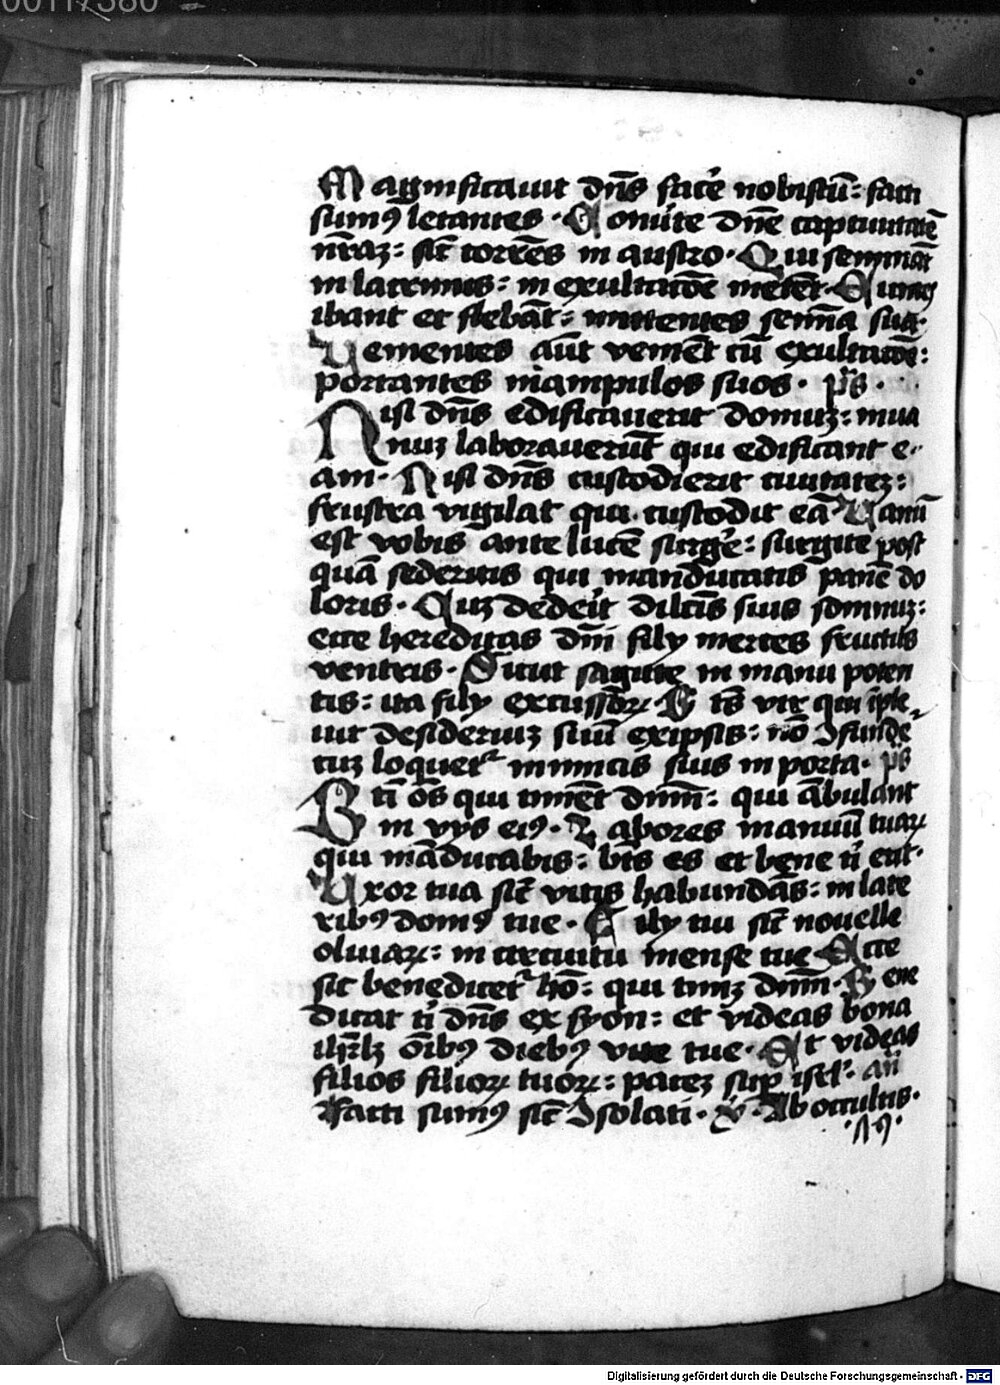 00117380
Magnificauit dn̄s facē nobiscū: facti
sumꝰ letantes. Conūte dn̄e captiuitatē
nr̄aꝫ: sic̄ torrēs in austro. Qui semināt
in lacrimis: in exultacōe metēt. Euntes
ibant et flebāt: mittentes semīa sua.
Uenientes aūt venient cū exultacōe:
portantes manipulos suos. ps̄.
Nisi dn̄s edificauerit domuꝫ: in ua
nuꝫ laborauerūt qui edificant e-
am. Nisi dn̄s custodierit ciuitateꝫ:
frustra vigilat qui custodit eā. Uanū
est vobis ante lucē surgē: surgite post
quā sederitis qui manducatis panē do
loris. Cuꝫ dedeīt dilc̄is suis somnuꝫ:
ecce hereditas dn̄i filij merces fructus
ventris. Sicut sagitte in manu poten
tis: ita filij excussoꝝ. Bt̄s vir qui īple
uit desideriuꝫ suū ex ipsis: nō ꝯfunde
tur loquet᷑ inimicis suis in porta. ps̄
Bt̄i oēs qui timēt dnm̄: qui ābulant
in vijs eiꝰ. Labores manuū tuaꝝ
qui māducabis: bt̄s es et bene t̄i erit.
Uxor tua sic̄ vitis habundās: in late
ribꝰ domꝰ tue. Filij tui sic̄ nouelle
oliuaꝝ: in circuitu mense tue. Ecce
sic benedicet᷑ hō: qui timꝫ dnm̄. Bene
dicat t̄i dn̄s ex syon: et videas bona
ihr̄lꝫ oībꝰ diebꝰ vite tue. Et videas
filios filioꝝ tuoꝝ: paceꝫ sup̄ isrl̄. an̄
Facti sumꝰ sic̄ ꝯsolati. v̄. Ab occultis.
Digitalisierung gefördert durch die Deutsche Forschungsgemeinschaft - DFG